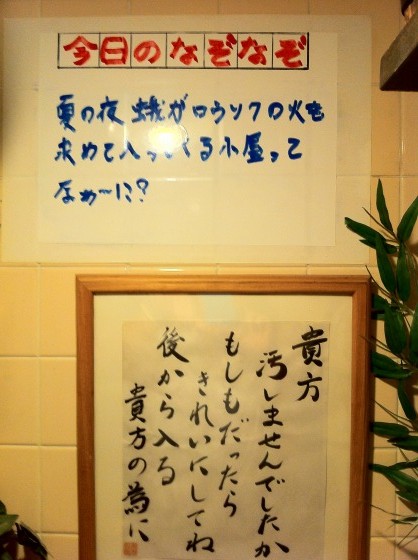 今日のなぞなぞ
夏の夜 蛾がロウソクの火を
求めて入ってくる小屋って
なぁ〜に?
貴方
汚しませんでしたか
もしもだったら
きれいにしてね
後から入る
貴方の為に